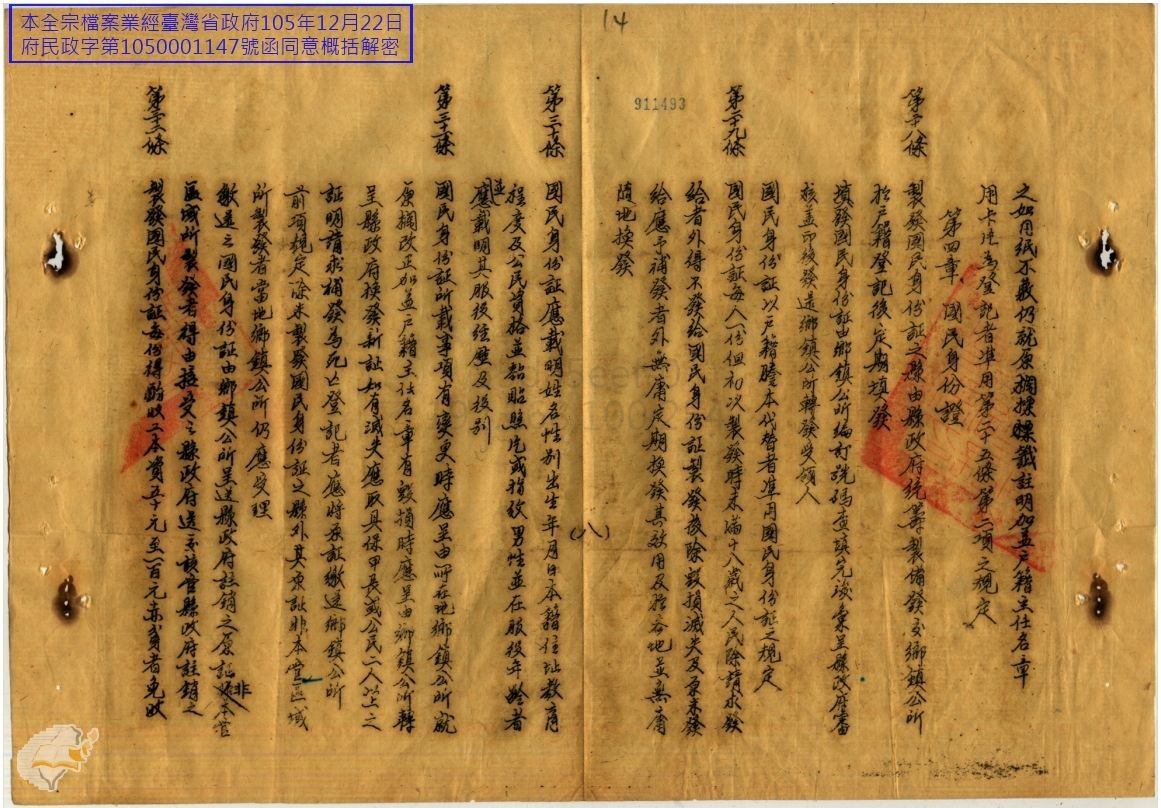 本全宗檔案業經臺灣省政府105年12月22日
府民政字第1050001147號函同意概括解密
14
911493
之如用紙不敷仍就原欄摞騍鐵註明加蓋戶籍主任名章
用卡片為登記者準用第二十五條第二項之規定
第四章 國民身份證
第二十八條 製發國民身份証之縣由縣政府統籌製備發交鄉鎮公所
於戶籍登記後定期填發
填發國民身份証由鄉鎮公所編訂號碼查填完竣彙呈縣政府審
核蓋印後發還鄉鎮公所轉發受領人
國民身份証以戶籍謄本代替者準用國民身份証之規定
第二十九條 國民身份証每人一份但初次製發時未滿十八歲之人民除請求發
給者外得不發給國民身份証製發後除毀損滅失及原未發
給應予補發者外無庸定期換發其效用及於各地並無庸
隨地換發
(八)
第三十條 國民身份証應載明姓名性別出生年月日本籍住址教育
程度及公民資格並黏貼照片或指紋男性並在服役年齡者
並應載明其服役經歷及役別
第三十一條 國民身份証所載事項有變更時應呈由所在地鄉鎮公所就
原欄改正加蓋戶籍主任名章有毀損時應呈由鄉鎮公所轉
呈縣政府換發新証如有滅失應取具保甲長或公民二人以上之
証明請求補發為死亡登記者應將原証繳送鄉鎮公所
前項規定除未製發國民身份証之縣外其原証非本管區域
所製發者當地鄉鎮公所仍應受理
繳送之國民身份証由鄉鎮公所呈送縣政府註銷之原証非本管
區域所製發者得由接受之縣政府送交該管縣政府註銷之
第三十二條 製發國民身份証每份得酌收工本費五十元至一百元赤貧者免收